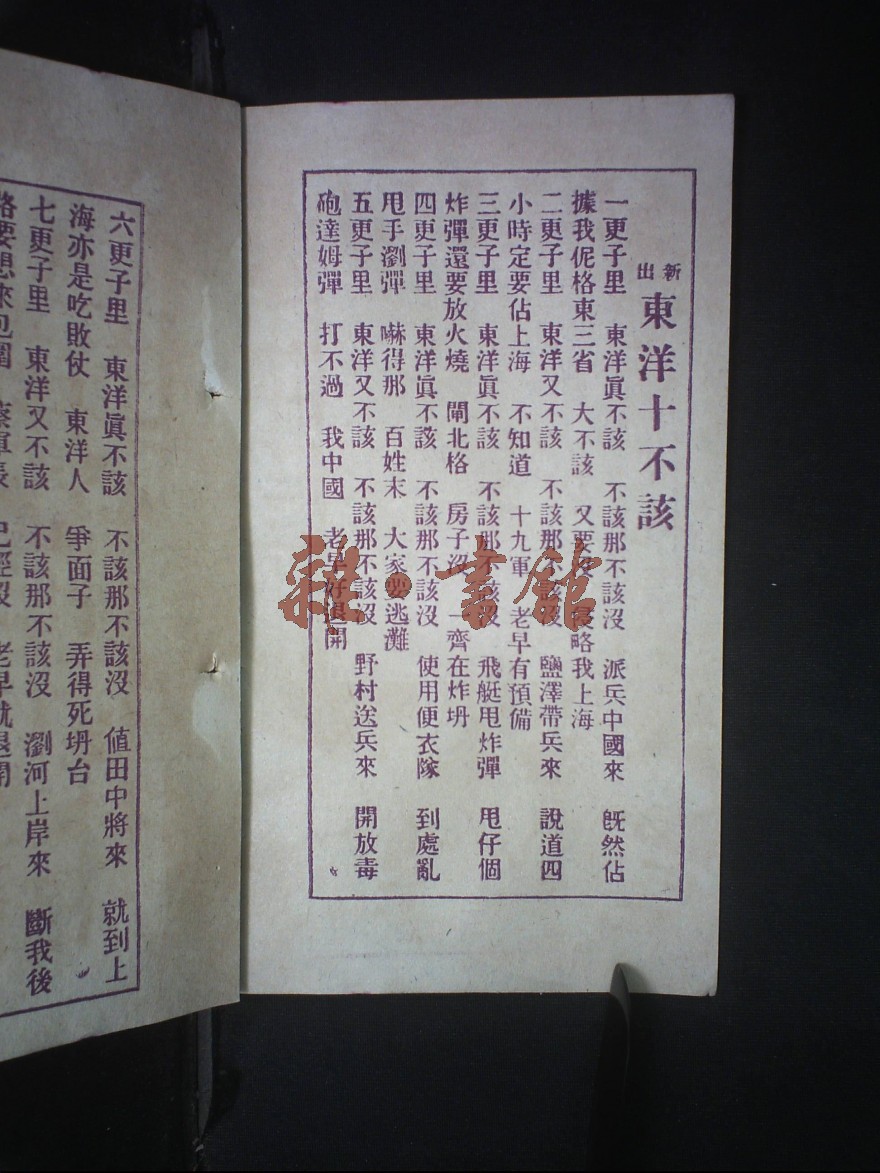 新出
東洋十不該
一更子里 東洋眞不該 不該那不該沒 派兵中國來 旣然佔
據我伲格東三省 大不該 又要 侵略我上海
二更子里 東洋又不該 不該那不該沒 鹽澤帶兵來 說道四
小時定要佔上海 不知道 十九軍 老早有預備
三更子里 東洋眞不該 不該那不該沒 飛艇甩炸彈 甩仔個
炸彈還要放火燒 閘北格 房子沒 一齊在炸坍
四更子里 東洋眞不該 不該那不該沒 使用便衣隊 到處亂
甩手瀏彈 嚇得那 百姓末 大家要逃灘
五更子里 東洋又不該 不該那不該沒 野村送兵來 開放毒
砲達姆彈 打不過 我中國 老早好退開
六更子里 東洋眞不該 不該那不該沒 値田中將來 就到上
海亦是吃敗仗 東洋人 爭面子 弄得死坍台
七更子里 東洋又不該 不該那不該沒 瀏河上岸來 斷我後
路要想來包圍 蔡軍長 已經沒 老早就退開
雜·書館